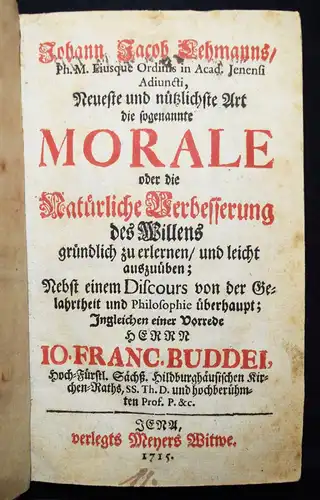 Johann Jacob Lehmanns/
Ph. M. Eiusque Ordinis in Acad. Jenensi
Adiuncti,
Neueste und nützlichste Art
die sogenannte
MORALE
oder die
Natürliche Verbesserung
des Willens
gründlich zu erlernen/ und leicht
auszuüben;
Nebst einem Discours von der Ge-
lahrtheit und Philosophie überhaupt;
Ingleichen einer Vorrede
HERRN
IO. FRANC. BUDDEI,
Hoch-Fürstl. Sächß. Hildburghäusischen Kir-
chen-Raths, SS. Th. D. und hochberühm-
ten Prof. P. &c.
JENA,
verlegts Meyers Witwe.
1715.